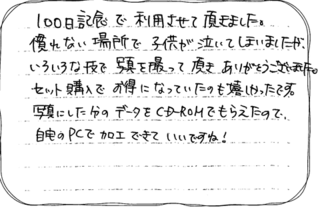 100日記念で利用させて頂きました。
慣れない場所で子供が泣いてしまいましたが、
いろいろな技で写真を撮って頂きありがとうございました。
セット購入でお得になっていたのも嬉しかったです。
写真にした分のデータをCD-ROMでもらえたので、
自宅のPCで加工できていいですね！